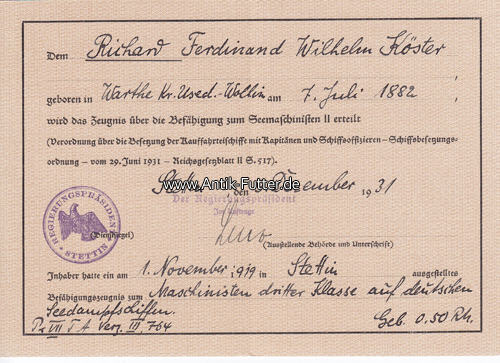 Dem Richard Ferdinand Wilhelm Köster
geboren in Warthe Kr. Used.-Wollin am 7. Juli 1882
wird das Zeugnis über die Befähigung zum Seemaschinisten II erteilt
(Verordnung über die Besetzung der Kauffahrteischiffe mit Kapitänen und Schiffsoffizieren – Schiffsbesetzungs-
ordnung – vom 29. Juni 1931 – Reichsgesetzblatt II S. 517).
www.Antik-Futter.de
den Dezember 1931
Der Regierungspräsident
Im Auftrage
REGIERUNGSPRÄSIDENT STETTIN
(Dienstsiegel)
(Ausstellende Behörde und Unterschrift)
Inhaber hatte ein am 1. November 1919 in Stettin ausgestelltes
Befähigungszeugnis zum Maschinisten dritter Klasse auf deutschen
Seedampfschiffen.
Geb. 0.50 Rh.